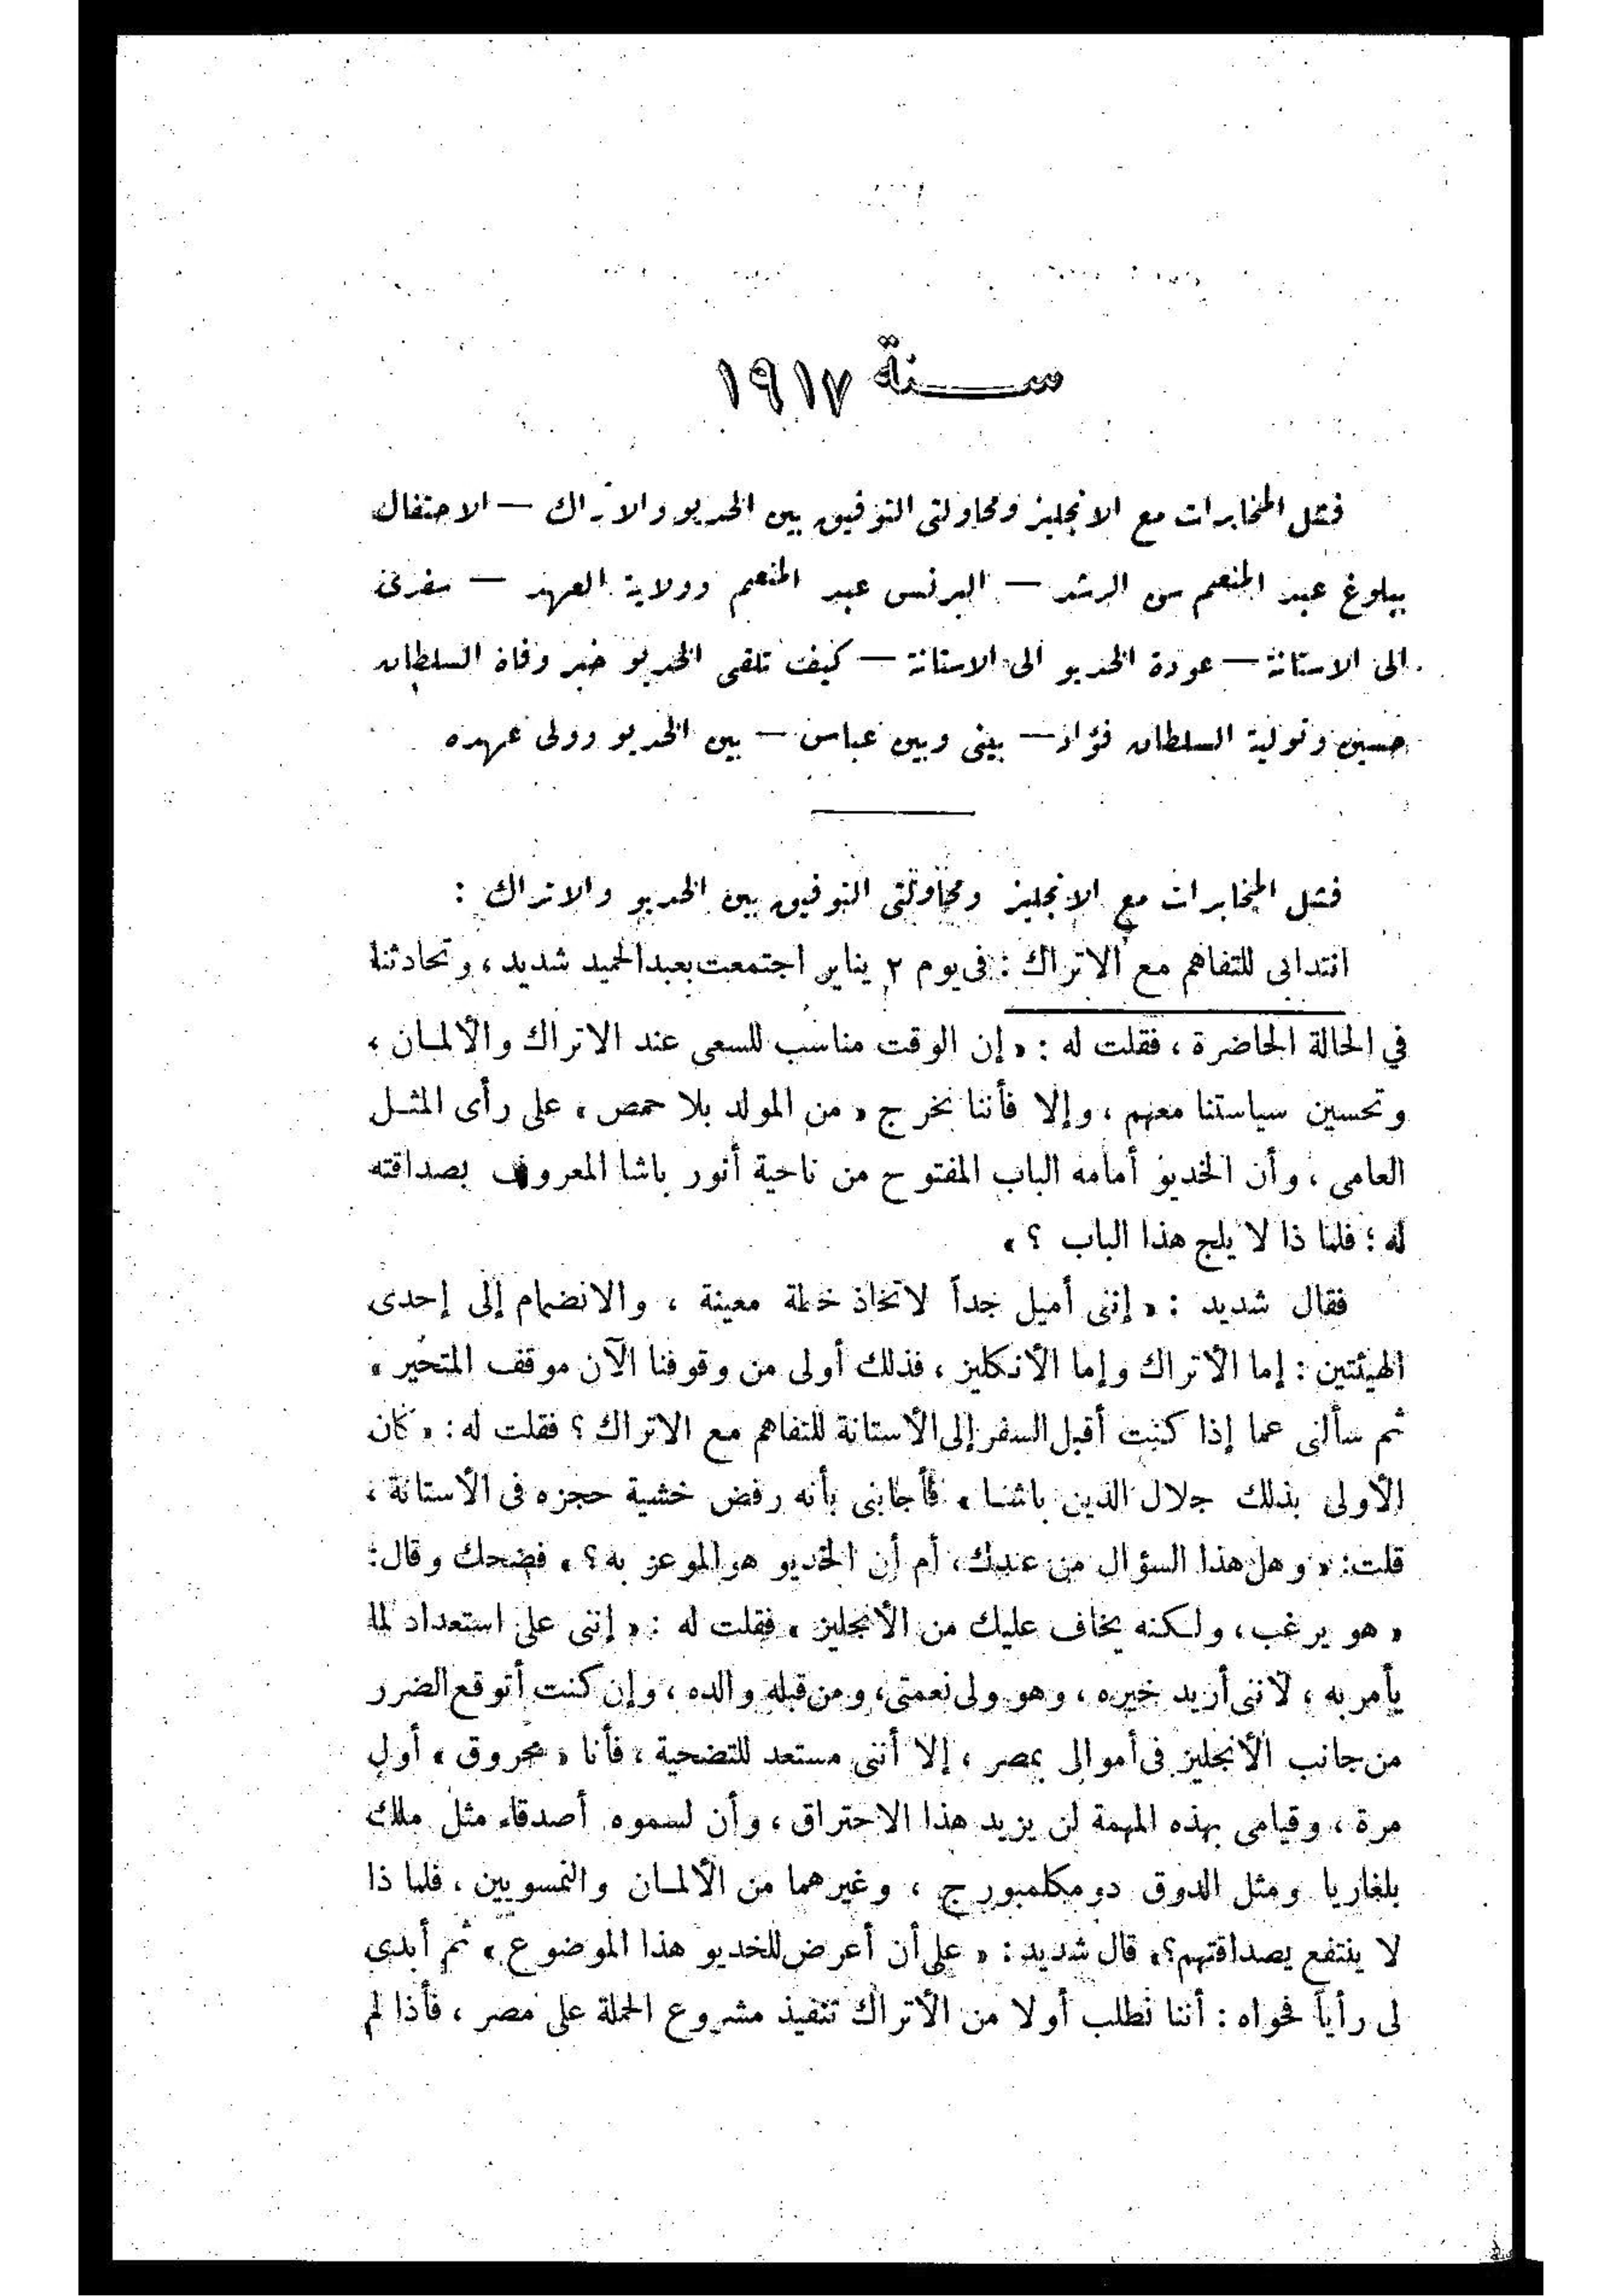 سنة ١٩١٧
فشل المخابرات مع الانجليز ومحاولتى التوفيق بين الخديو والاتراك — الاحتفال
ببلوغ عبد المنعم سن الرشد — البرنس عبد المنعم وولاية العهد — سفرى
الى الاستانة — عودة الخديو الى الاستانة — كيف تلقى الخديو خبر وفاة السلطان
حسين وتولية السلطان فؤاد — بينى وبين عباس — بين الخديو وولى عهده
فشل المخابرات مع الانجليز ومحاولتى التوفيق بين الخديو والاتراك :
انتدابى للتفاهم مع الاتراك : فى يوم ٢ يناير اجتمعت بعبد الحميد شديد ، وتحادثنا
في الحالة الحاضرة ، فقلت له : « إن الوقت مناسب للسعى عند الاتراك والألمـان ،
وتحسين سياستنا معهم ، وإلا فأننا نخرج « من المولد بلا حمص » على رأى المثـل
العامى ، وأن الخديو أمامه الباب المفتوح من ناحية أنور باشا المعروف بصداقته
له ؛ فلماذا لا يلج هذا الباب ؟ »
فقال شديد : « إننى أميل جداً لاتخاذ خطة معينة ، والانضمام إلى إحدى
الهيئتين : إما الأتراك وإما الأنكليز ، فذلك أولى من وقوفنا الآن موقف المتحير »
ثم سألنى عما إذا كنت أقبل السفر إلى الأستانة للتفاهم مع الاتراك ؟ فقلت له : « كان
الأولى بذلك جلال الدين باشـا » فأجابنى بأنه رفض خشية حجزه فى الأستانة ،
قلت : « وهل هذا السؤال من عندك ، أم أن الخديو هو الموعز به ؟ » فضحك وقال :
« هو يرغب ، ولـكنه يخاف عليك من الأنجليز » فقلت له : « إننى على استعداد لما
يأمر به ، لأننى أريد خيره ، وهو ولى نعمتى ، ومن قبله والده ، وإن كنت أتوقع الضرر
من جانب الأنجليز فى أموالى بمصر ، إلا أننى مستعد للتضحية ، فأنا « محروق » أول
مرة ، وقيامى بهذه المهمة لن يزيد هذا الاحتراق ، وأن لسموه أصدقاء مثل ملك
بلغاريا ومثل الدوق دو مكلمبورج ، وغيرهما من الألمـان والنمسويين ، فلماذا
لا ينتفع بصداقتهم ؟ » قال شديد : « على أن أعرض للخديو هذا الموضوع » ثم أبدى
لى رأياً فحواه : أننا نطلب أولا من الأتراك تنفيذ مشروع الحملة على مصر ، فأذا لم